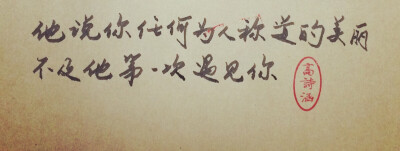 他说你任何为人称道的美丽
不及他第一次遇见你
高詩涵